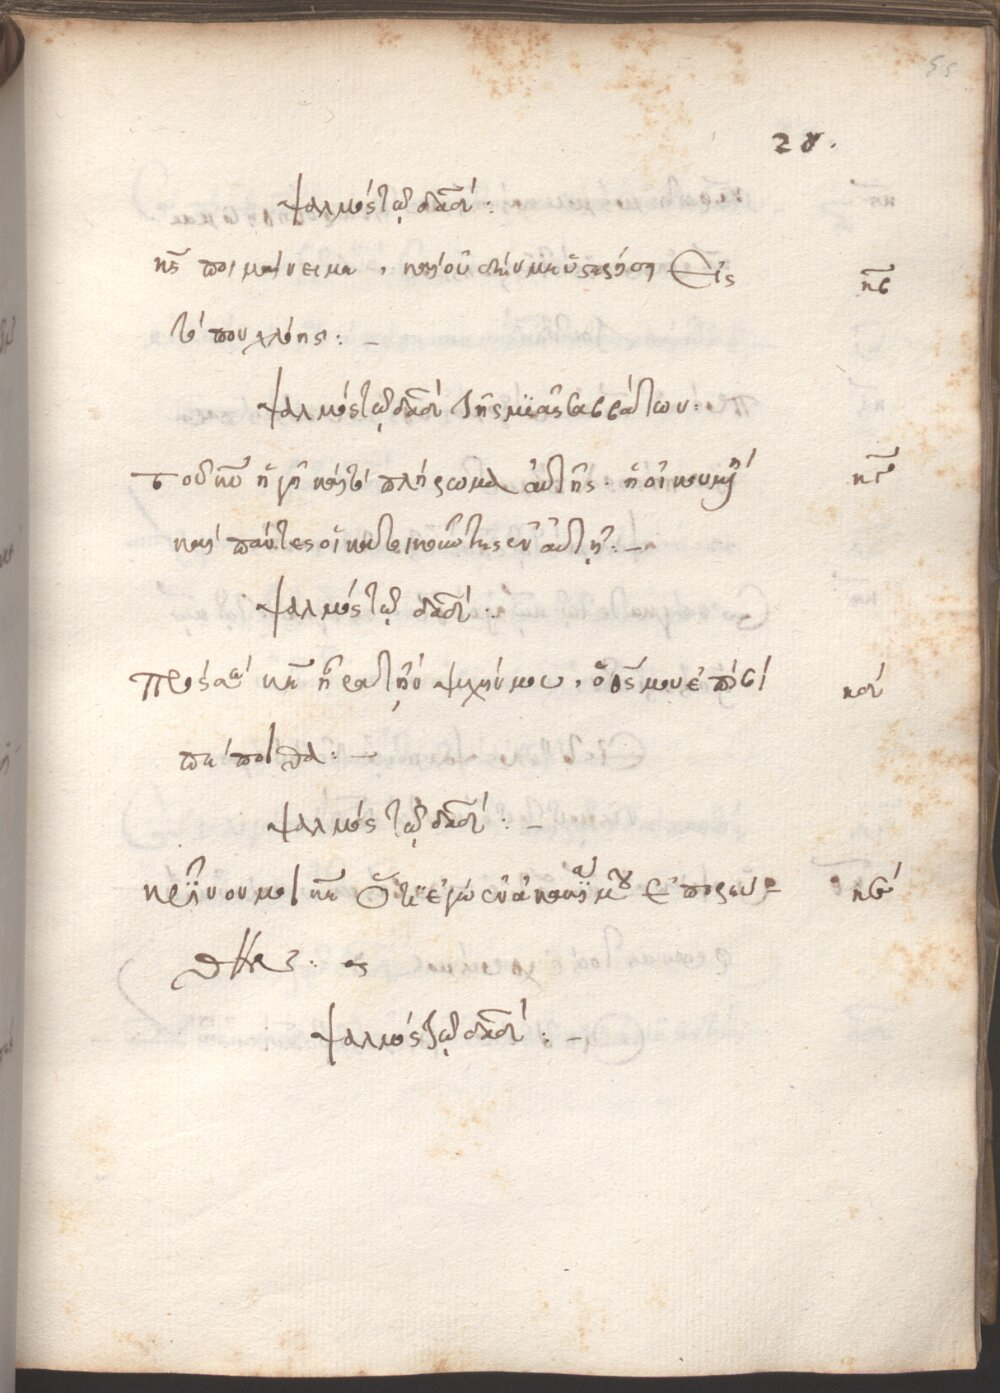 28.
ψαλμός τῷ δαδ́:
κς̄ ποιμαίνει με, καὶ οὐδέν με ὑστερήσει Εἰς
τό που χλόης: –
ψαλμός τῷ δαδ́ τῆς μιᾶς σαββάτων:
τοῦ κῡ ἡ γῆ καὶ τό πλήρωμα αὐτῆς· ἡ οἰκουμένη
καὶ πάντες οἱ κατοικοῦντες ἐν αὐτῇ: –
ψαλμός τῷ δαδ́:
Πρός σέ κε̄ ἦρα τήν ψυχήν μου, ὁ θς̄ μου ἐπί σοί
πέποιθα: –
ψαλμός τῷ δαδ́: –
κρῖνον μοι κε̄ Ὅτι ἐγώ ἐν ἀκακίᾳ μου ἐπορεύ-
θην:
ψαλμός τῷ δαδ́: –
κβ
κγ
κδ́
κέ